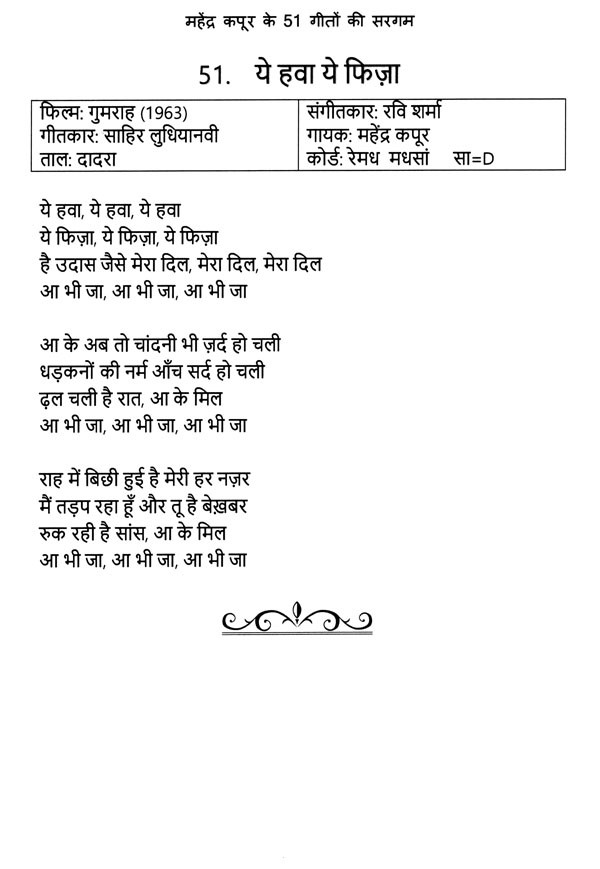 महेंद्र कपूर के 51 गीतों की सरगम
51. ये हवा ये फिज़ा
फिल्म: गुमराह (1963)
गीतकार: साहिर लुधियानवी
ताल: दादरा
संगीतकार: रवि शर्मा
गायक: महेंद्र कपूर
कोर्ड: रेमध मधसां सा=D
ये हवा, ये हवा, ये हवा
ये फिज़ा, ये फिज़ा, ये फिज़ा
है उदास जैसे मेरा दिल, मेरा दिल, मेरा दिल
आ भी जा, आ भी जा, आ भी जा
आ के अब तो चांदनी भी ज़र्द हो चली
धड़कनों की नर्म आँच सर्द हो चली
ढ़ल चली है रात, आ के मिल
आ भी जा, आ भी जा, आ भी जा
राह में बिछी हुई है मेरी हर नज़र
मैं तड़प रहा हूँ और तू है बेख़बर
रुक रही है सांस, आ के मिल
आ भी जा, आ भी जा, आ भी जा